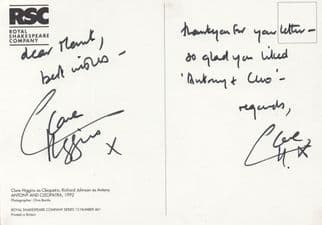 RSC
ROYAL
SHAKESPEARE
COMPANY
dear
best wishes -
Clare
Higgins X
Clare Higgins as Cleopatra, Richard Johnson as Antony
ANTONY AND CLEOPATRA, 1992
Photographer:
ROYAL SHAKESPEARE COMPANY SERIES 12 NUMBER
Printed in Britain
Thankyou for your letter -
so glad you liked
'Antony + Cleo' -
regards,
Clare
H. X